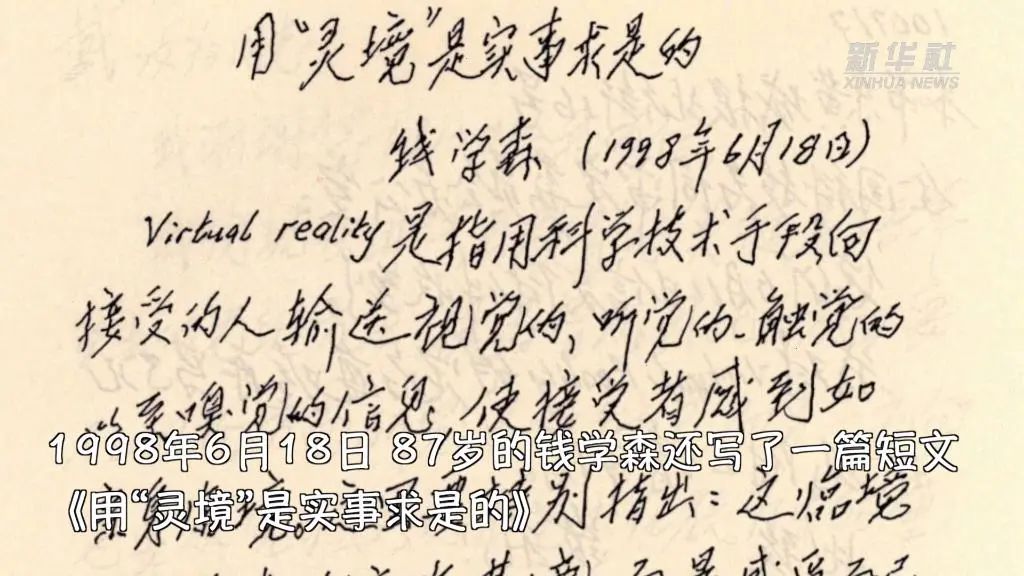 用“灵境”是实事求是的
新华社
XINHUA NEWS
钱学森 (1998年6月18日)
Virtual reality是指用科学技术手段向
接受的人输送视觉的、听觉的、触觉的
以至嗅觉的信息,使接受者感到如
1998年6月18日 87岁的钱学森还写了一篇短文
《用“灵境”是实事求是的》
别指出:这临境